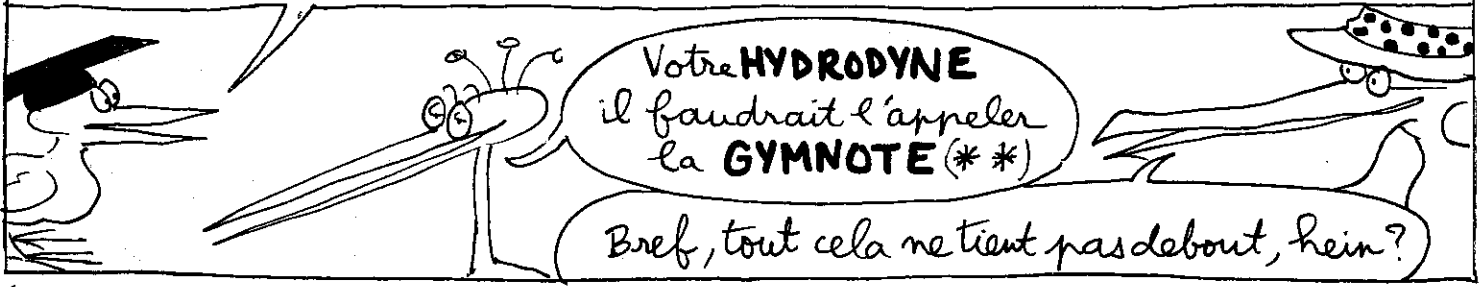 Votre HYDRODYNE
il faudrait l'appeler
la GYMNOTE (**)
Bref, tout cela ne tient pas debout, hein?